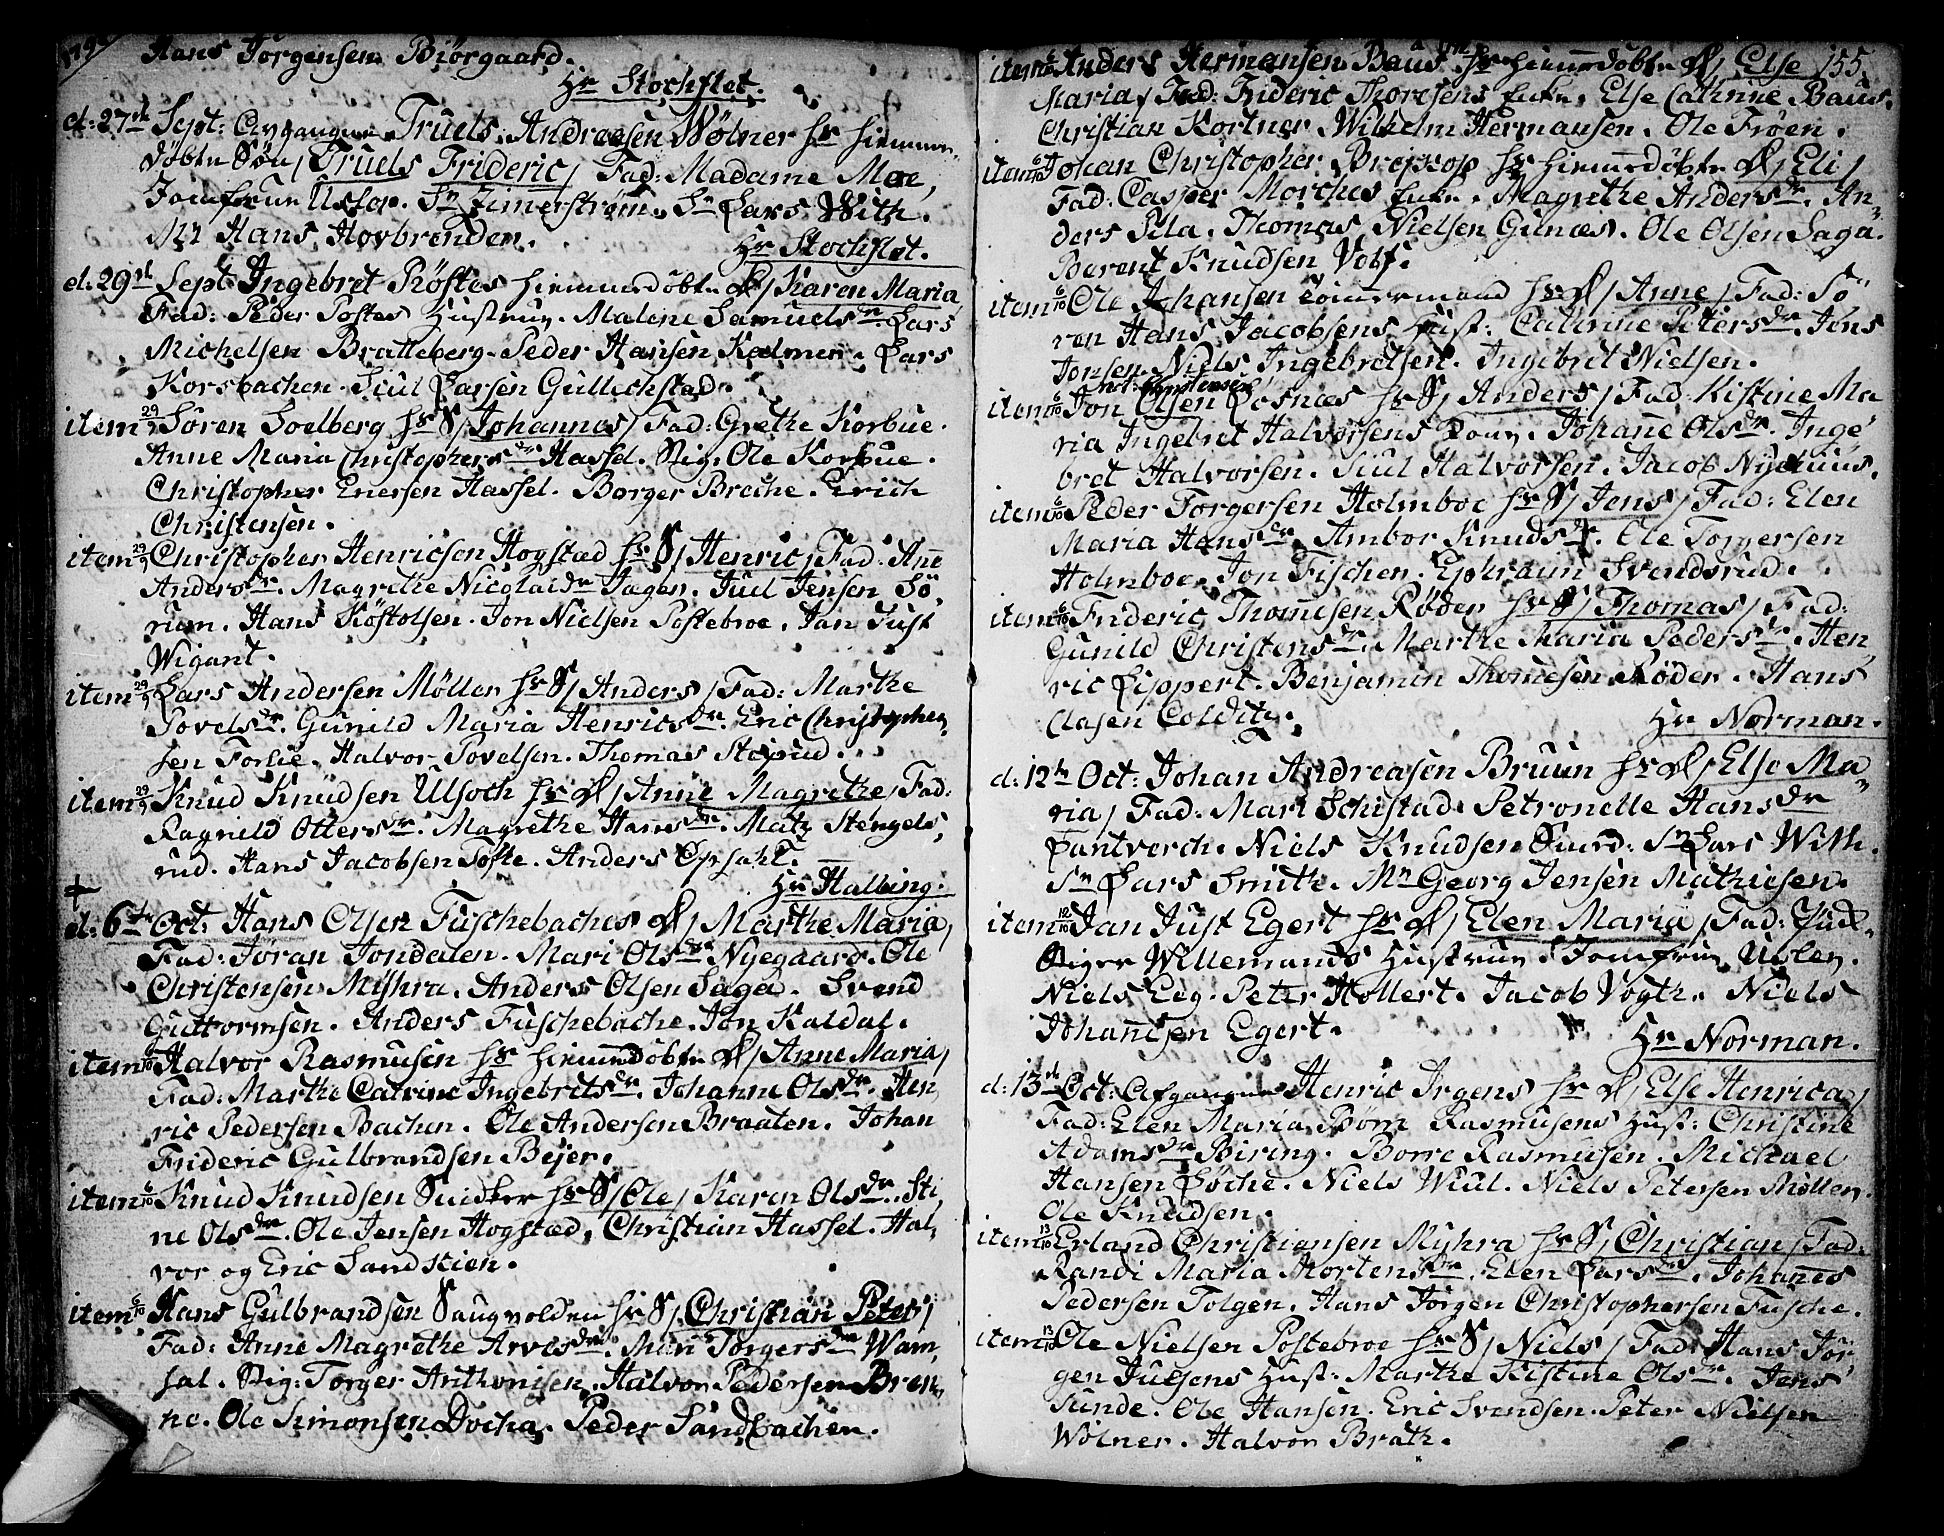 Hans Jørgensen Biørgaard.
Hr Stochflet.
d: 27de Sept: Truels Andreasen Wølner hs hiemme
døbte Søn / Truels Frideric / Fad: Madame Moe,
Jomfrue Uslev. Sr Zimerstrøm. Sr Lars With.
Mr Hans Hovbrenden.
Hr Stochflet.
d: 29de Sept Ingebret Røstes hiemmedøbte D / Karen Maria /
Fad: Peder Postes Hustrue. Malene Samuelsdr. Lars
Michelsen Bratteberg. Peder Hansen Kalmer. Lars
Korsbachen. Juul Larsen Gullichstad.
item 29/9 Søren Soelberg hs S / Johannes / Fad: Grethe Korbue.
Anne Maria Christophersdr Hassel. Stig. Ole Korbue.
Christopher Enersen Hassel. Borger Breche. Erich
Christensen.
item 29/9 Christopher Henricsen Hogstad hs S / Henric / Fad: Añe
Andersdr. Magrethe Nicolaidr Jæger. Juel Jensen Sø,
rum. Hans Kostolsen. Jon Nielsen Postebroe. Jan Just
Wigant.
item 29/9 Lars Andersen Møller hs S / Anders / Fad: Marthe
Povelsdr. Gunild Maria Henricsdr. Eric Christopher,
sen Forlie. Halvor Povelsen. Thomas Stoprud.
item 29/9 Knud Knudsen Ulsoch hs D / Anne Magrethe / Fad:
Ragnild Ottersdr. Magrethe Hansdr. Matz Stengels,
rud. Hans Jacobsen Tofte. Anders Opsahl.
Hr Halling.
d: 6te Oct: Hans Olsen Fuschebaches D / Marthe Maria /
Fad: Joran Jondalen. Mari Olsdr Nyegaard. Ole
Christensen Myhra. Anders Olsen Saga. Svend
Guttormsen. Anders Fuschebache. Jon Kaldal.
item 6/10 Halvor Rasmusen hs hiemmedøbte D / Anne Maria /
Fad: Marthe Catrine Ingebretsdr. Johanne Olsdr. Hen,
ric Pedersen Bachen. Ole Andersen Braaten. Johan
Frideric Gulbrandsen Bejer.
item 6/10 Knud Knudsen Snidker hs S / Ole / Karen Olsdr. Sti,
ne Olsdr. Ole Jensen Hogstad, Christian Hassel. Hal,
vor og Eric Sandstien.
item 6/10 Hans Gulbrandsen Saugvolden hs S / Christian Peter /
Fad: Anne Magrethe Arvesdr. Mari Torgersdr Wam,
sal. Stig: Torger Anthonisen. Halvor Pedersen Bren,
ne. Ole Simonsen Docka. Peder Sandbachen.
155.
item 6/10 Anders Hermansen Baus hs hiemmedøbte D / Else
Maria / Fad: Frideric Thoresens Enke. Else Cathrine Baus.
Christian Kortner. Wilhelm Hermansen. Ole Frøen.
item 6/10 Johan Christopher Brejskop hs hiemmedøbte D / Eli /
Fad: Casper Morches Enke. Magrethe Andersdr. An,
ders Sela. Thomas Nielsen Gunæs. Ole Olsen Saga.
Berent Knudsen Volf.
item 6/10 Ole Johansen Tømermand hs D / Anne / Fad: Sø,
ren Hans Jacobsens Hust: Cathrine Petersdr. Jens
Jonsen. Niels Ingebretsen. Ingebret Nielsen.
item 6/10 Jon Olsen Løsnæs hs S / Anders / Fad: Kistine Ma
ria Ingebret Halvorsens Kone. Johañe Olsdr. Inge
bret Halvorsen. Juul Halvorsen. Jacob Nyehuus.
item 6/10 Peder Torgersen Holmboe hs S / Jens / Fad: Elen
Maria Hansdr. Ambor Knudsdr. Ole Torgersen
Holmboe. Jon Fischer. Ephraim Svendsrud.
item 6/10 Frideric Thomesen Røder hs S / Thomas / Fad:
Gunild Christensdr. Marthe Maria Pedersdr. Hen,
ric Lippert. Benjamin Thomesen Røder. Hans
Clasen Colditz.
Hr Norman.
d: 12te Oct: Johan Andreasen Bruun hs D / Else Ma,
ria / Fad: Mari Schistad. Petronelle Hansdr
Lantverch. Niels Knudsen Suurd. Sr Lars With.
Sr Lars Smith. Mr Georg Jensen Mathiesen.
item 12/10 Jan Just Egert hs D / Elen Maria / Fad:
Stiger Willemands Hustrue. Jomfrue Uslev.
Niels Eeg. Peter Hollert. Jacob Vogth. Niels
Johañsen Egert.
Hr Norman.
d: 13de Oct: Afgangne Henric Irgens hs D / Else Henrica /
Fad: Elen Maria Børre Rasmusens Hust: Christine
Adamsdr Biring. Borre Rasmusen. Michael
Hansen Løche. Niels Wiul. Niels Petersen Møller.
Ole Knudsen.
item 13/10 Erland Christiansen Myhra hs S / Christian / Fad:
Randi Maria Mortensdr. Elen Larsdr. Johañes
Pedersen Tolgen. Hans Jørgen Christophersen Fusche.
item 13/10 Ole Nielsen Postebroe hs S / Niels / Fad: Hans Jør,
gen Juelsens Hust: Marthe Kistine Olsdr. Jens
Sunde. Ole Hansen. Eric Svendsen. Peter Nielsen
Wølner. Halvor Brath.